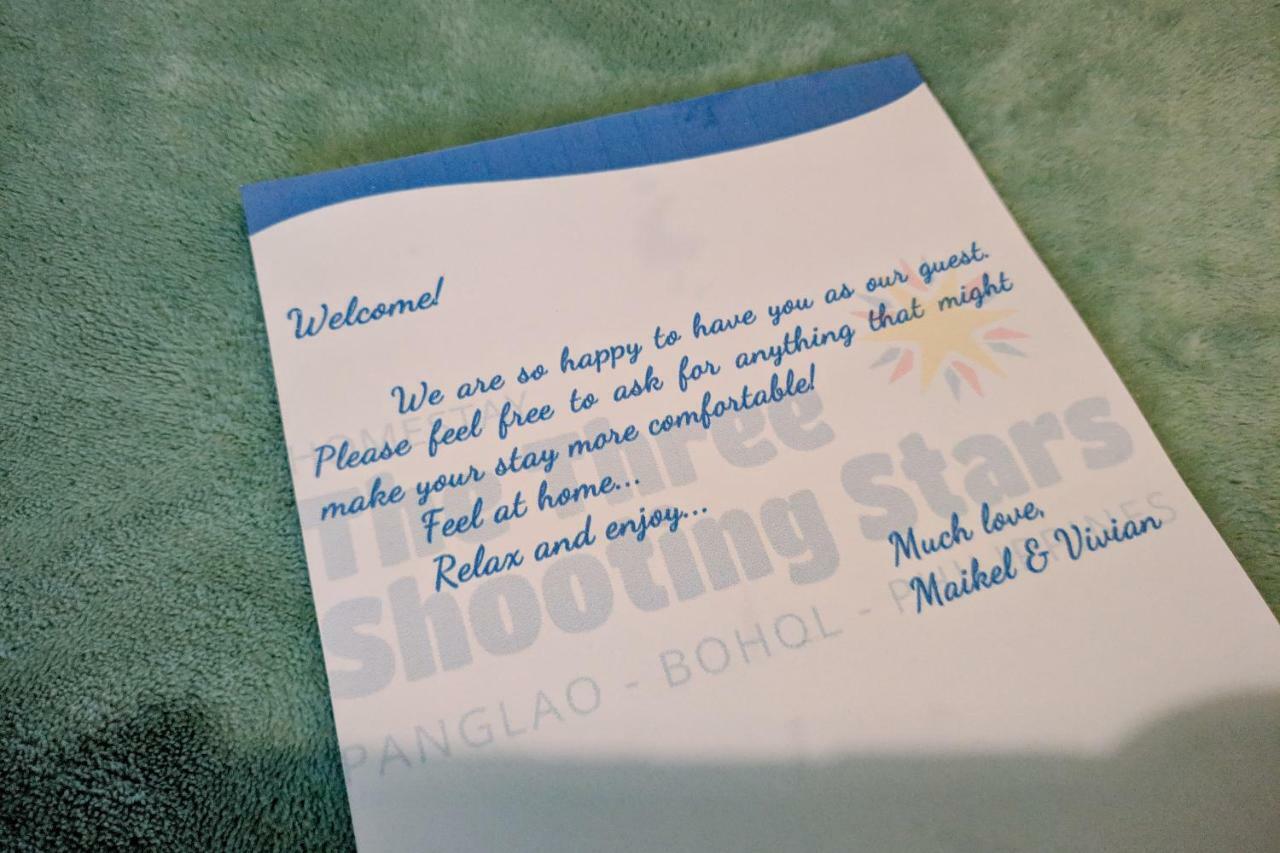 Welcome!
We are so happy to have you as our guest.
Please feel free to ask for anything that might
make your stay more comfortable!
Feel at home...
Relax and enjoy...
Much love,
Maikel & Vivian
HOMESTAY
The Three
Shooting Stars
PANGLAO - BOHOL - PHILIPPINES